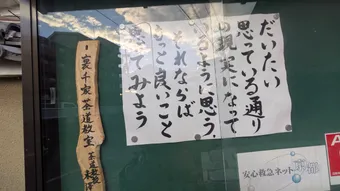 だいたい
思っている通り
の現実になって
いるように思う。
それならば
もっと良いこと
思ってみよう
裏千家茶道教室
安心救急ネット